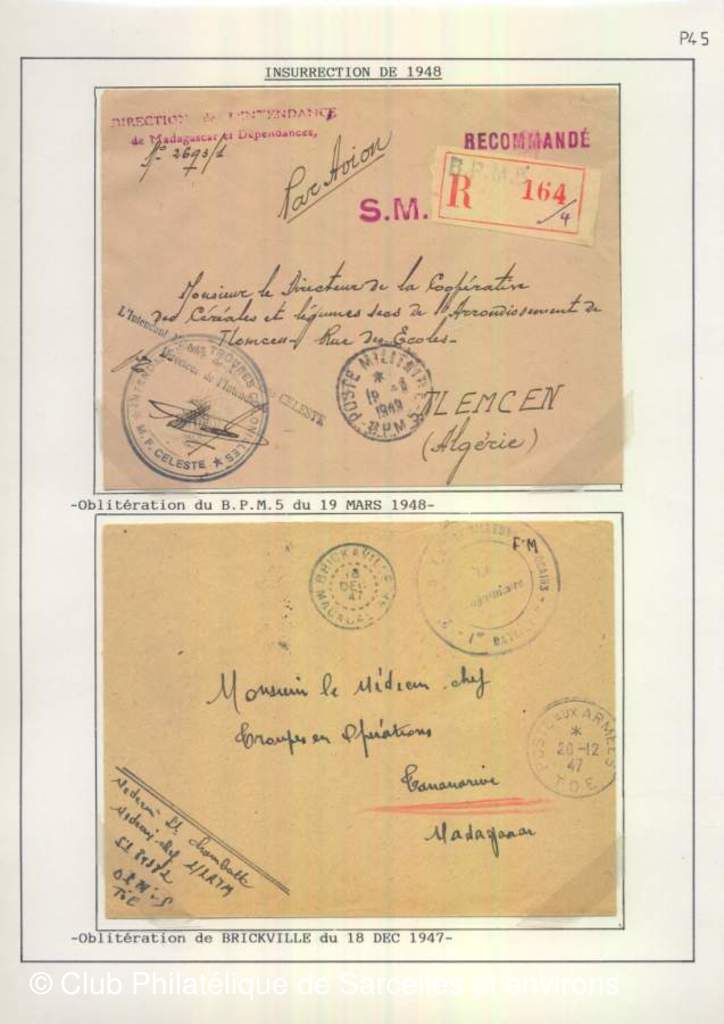 P45
INSURRECTION DE 1948
DIRECTION de L'INTENDANCE
de Madagascar et Dépendances,
N° 2693/1
Par Avion
RECOMMANDÉ
S.M.
B.P.M.5
R 164
/4
Monsieur le Directeur de la Coopérative
des Céréales et légumes secs de l'Arrondissement de
Tlemcen - Rue des Ecoles -
L'Intendant
TROUPES COLONIALES
Directeur de l'Intendance
CELESTE
M. F. CELESTE
POSTE MILITAIRE
*
1948
B.P.M. 5
TLEMCEN
(Algérie)
-Oblitération du B.P.M.5 du 19 MARS 1948-
BRICKAVILLE
18
DEC
47
MADAGASCAR
F.M
1er BATAILLON
POSTE AUX ARMEES
*
20-12
47
T.O.E.
Monsieur le Médecin chef
Troupes en Opérations
Tananarive
Madagascar
Médecin Lt
Médecin-chef
T.O.E
-Oblitération de BRICKVILLE du 18 DEC 1947-
© Club Philatélique de Sarcelles et environs